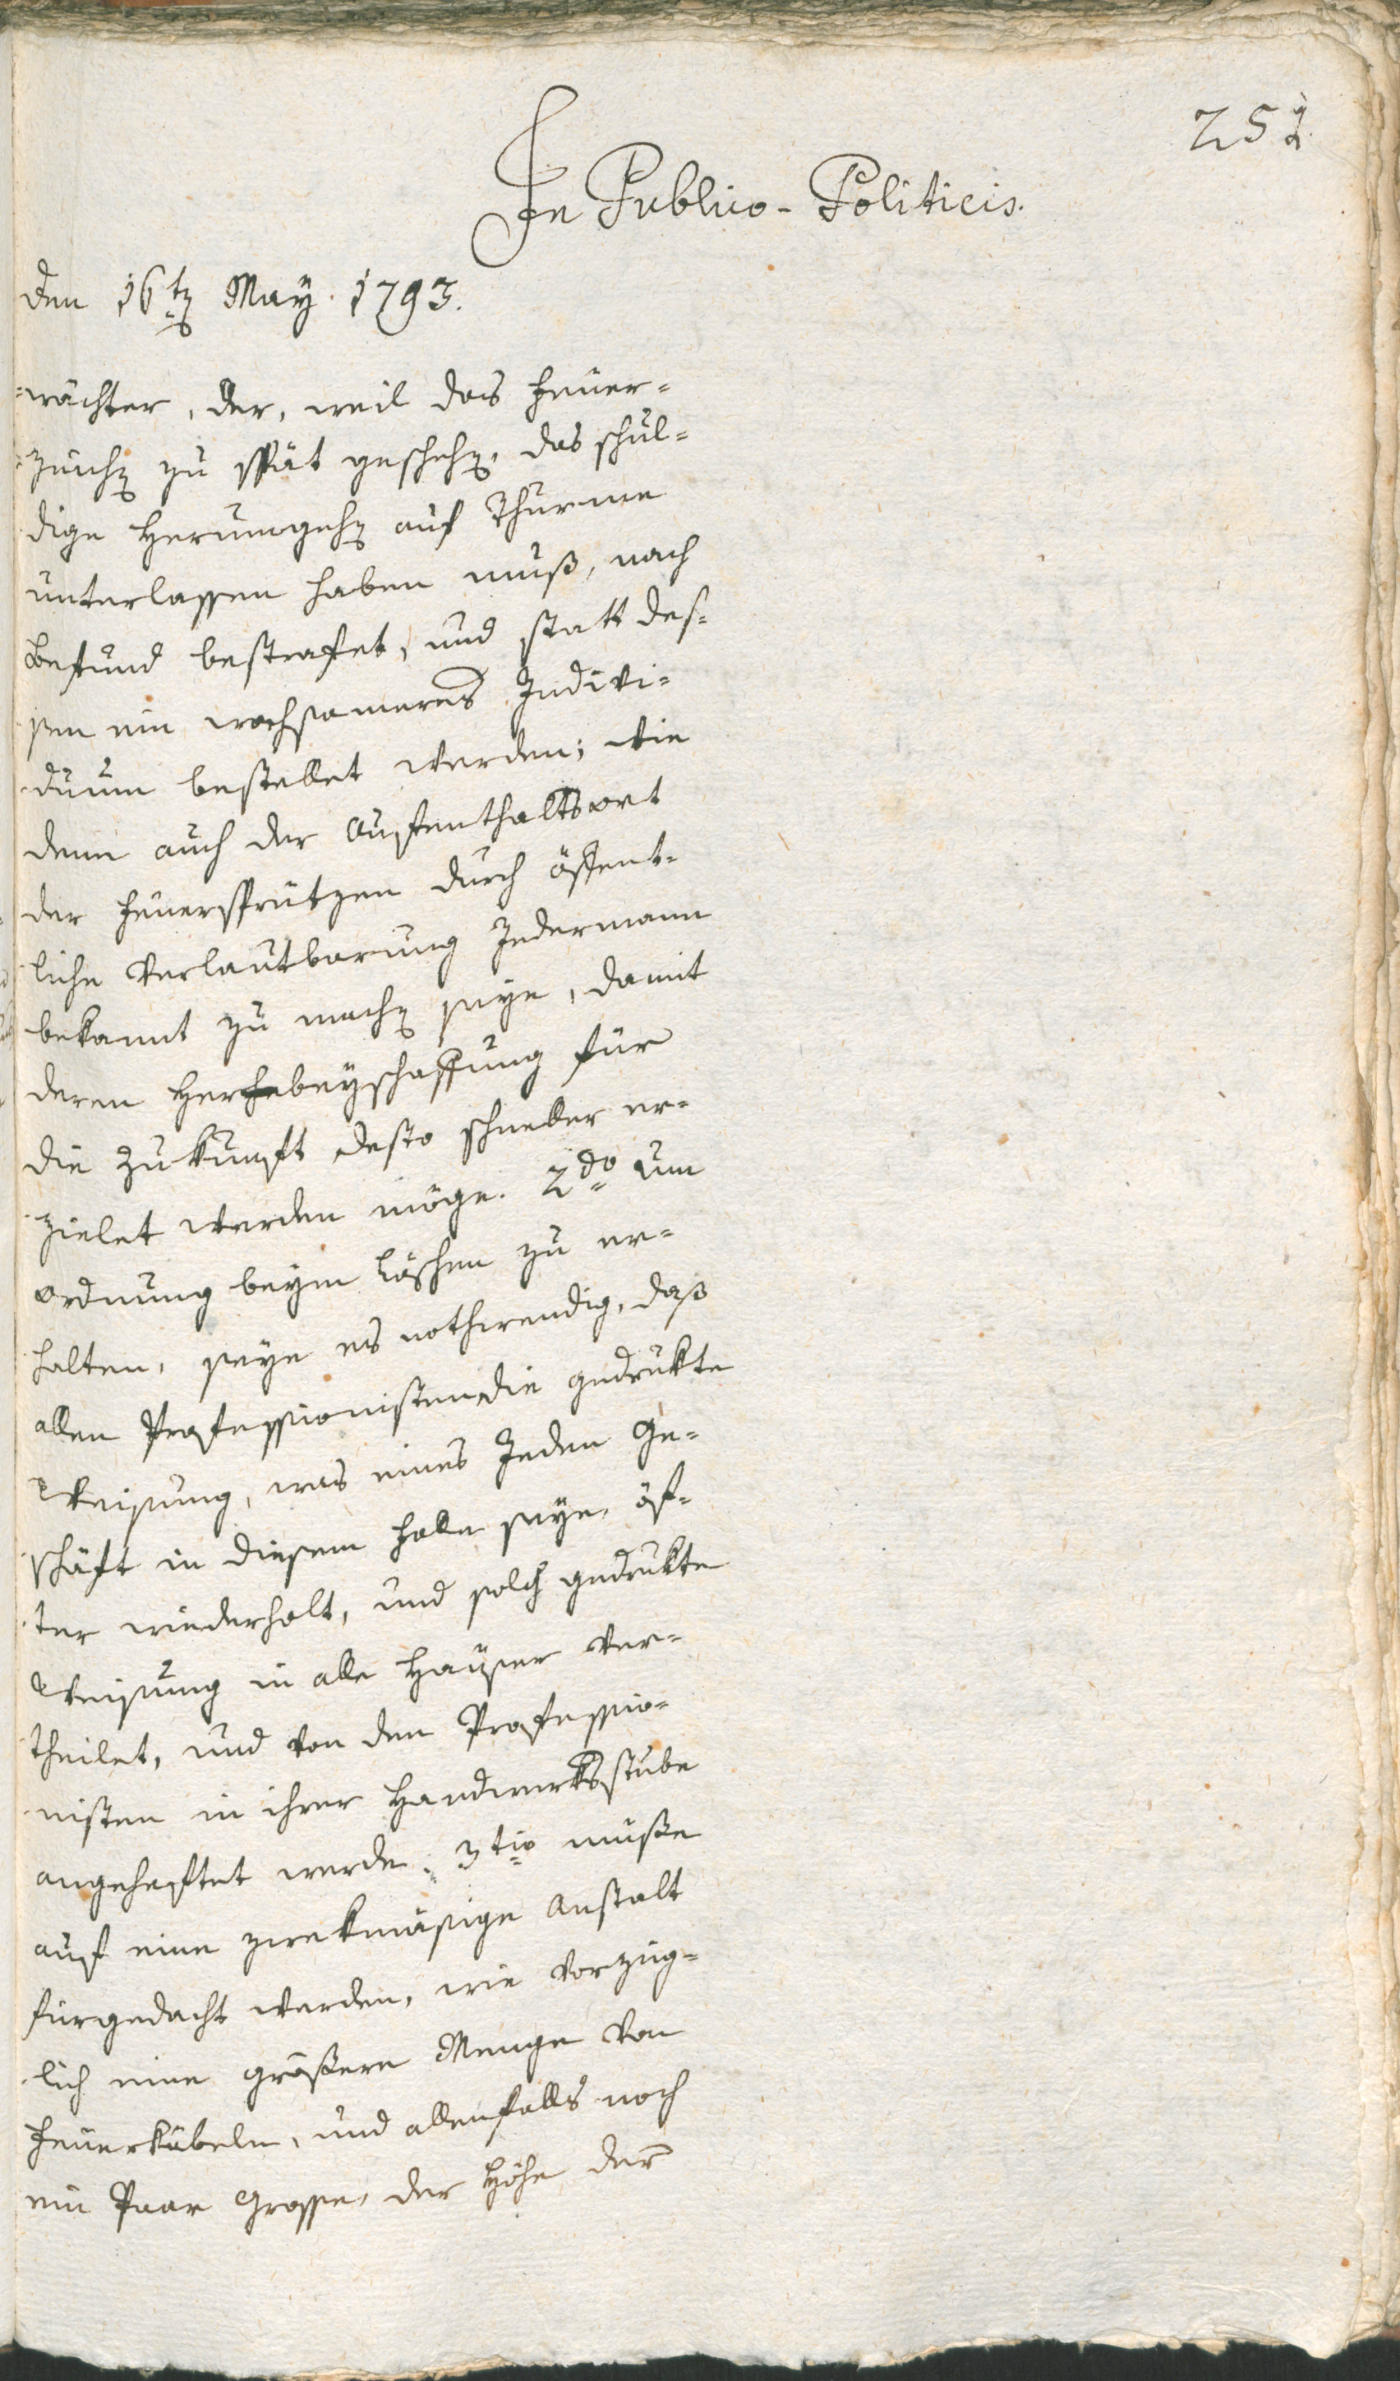 251.
In Publico-Politicis.
den 16ten May 1793.
wächter, der, weil das Feuer-
zeichen zu spät geschehen, das schul-
dige Herumgehen auf Thurme
unterlassen haben muß, nach
Befund bestrafet, und statt des-
sen ein wachsameres Indivi-
duum bestellet werden; wie
denn auch der Aufenthaltsort
der Feuerspritzen durch öffent-
liche Verlautbarung Jedermann
bekannt zu machen seye, damit
deren Herbeyschaffung für
die Zukunft desto schneller er-
zielet werden möge. 2do um
Ordnung beym Löschen zu er-
halten, seye es nothwendig, daß
allen Professionisten die gedrukte
Weisung, was eines Jeden Ge-
schäft in diesem Falle seye, öf-
ter wiederholt, und solch gedrukte
Weisung in alle Häuser ver-
theilet, und von den Professio-
nisten in ihrer Handwerksstube
angeheftet werde. 3tio müsse
auf eine zwekmäsige Anstalt
fürgedacht werden, wie vorzüg-
lich eine größere Menge von
Feuerkübeln, und allenfalls noch
ein Paar Grosse, der Höhe der